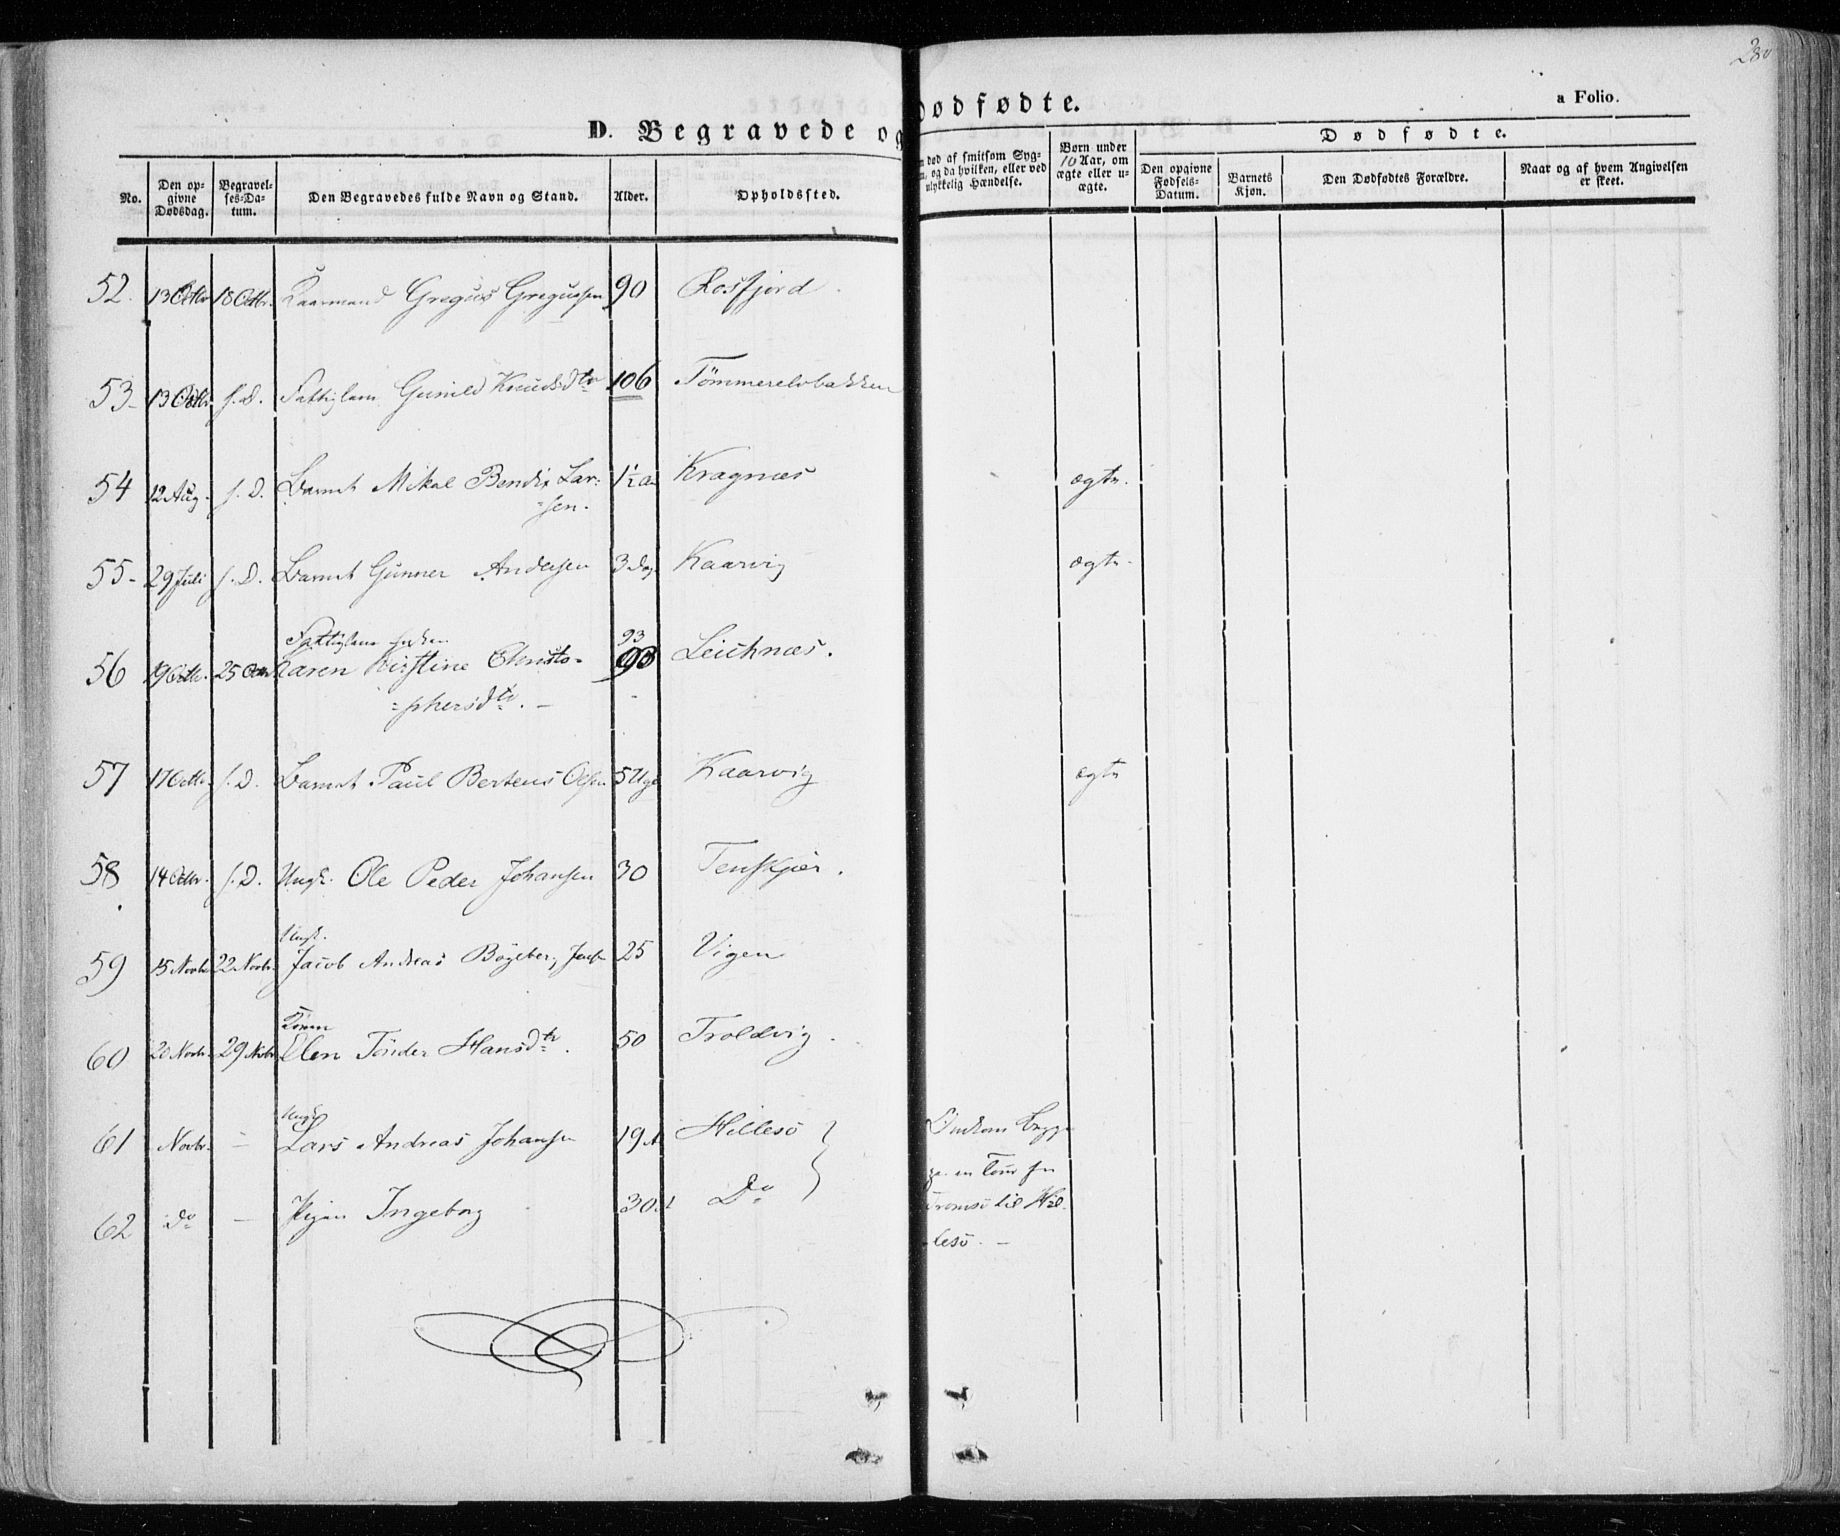 280
D. Begravede og Dødfødte.
a Folio.
No.
Den opgivne Dødsdag.
Begravelses-Datum.
Den Begravedes fulde Navn og Stand.
Alder.
Opholdssted.
død af smitsom Syg-
og da hvilken, eller ved
ulykkelig Hændelse.
Børn under 10 Aar, om ægte eller uægte.
Dødfødte.
Den opgivne Fødsels-Datum.
Barnets Kjøn.
Den Dødfødtes Forældre.
Naar og af hvem Angivelsen er skeet.
52. 13 Octbr 18 Octbr. Kaarmand Gregus Gregusen 90 Rosfjord.
53- 13 Octbr. s.D. Fattiglem Gunild Knudsdtr 106 Tömmerelvbakken
54 12 Aug. s.D. Barnet Mikal Bendix Lar-
=sen. 1½ Kragnæs ægte.
55- 29 Juli s.D. Barnet Gunner Andersen 3 Dag Kaarvig ægte.
Fattiglem Enken 93
56 19 Octbr. 25 Octbr Karen Kirstine Christo-
=phersdtr. 93 Leichnæs.
57 17 Octbr. s.D. Barnet Paul Berteus Olsen 5 Uge Kaarvig ægte
58 14 Octbr. s.D. Ungk. Ole Peder Johansen 30 Tenskjær.
Ungk.
59 15 Novbr 22 Novbr. Jacob Andreas Bögeberg 25 Vigen
Konen
60 20 Novbr. 29 Novbr Elen Tönder Hansdtr. 50 Troldvig.
Ungk
61 Novbr. — Lars Andreas Johansen 19 A Hillesö
62 Do — Pigen Ingeborg 30 Do
Omkom begge
paa en Tour fra
Tromsö til Hil-
lesö. —